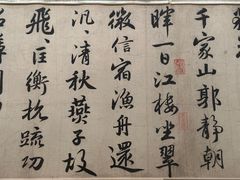 千家山郭靜朝
暉一日江樓坐翠
微信宿漁舟還
汎〻清秋燕子故
飛〻匡衡抗疏功